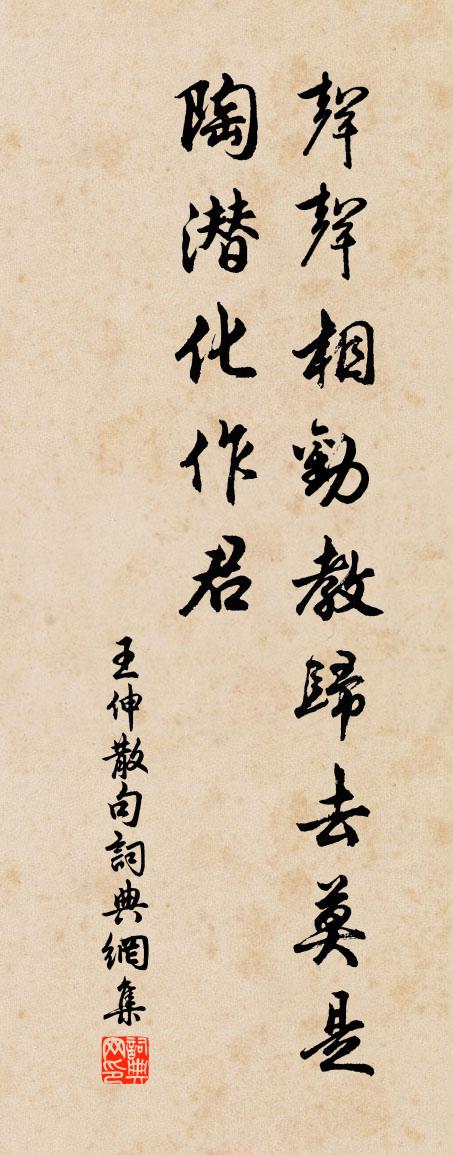 聲聲相勸教歸去莫是
陶潛化作君
王伸散句詞典網集
詞典
网印